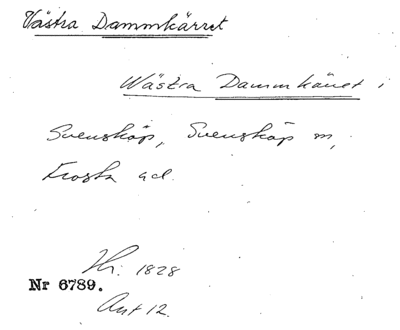 Västra Dammkärret
Wästra Dammkärret i
Svensköp, Svensköp sn,
Frosta hd.
Hr. 1828
Nr 6789.
Akt 12.